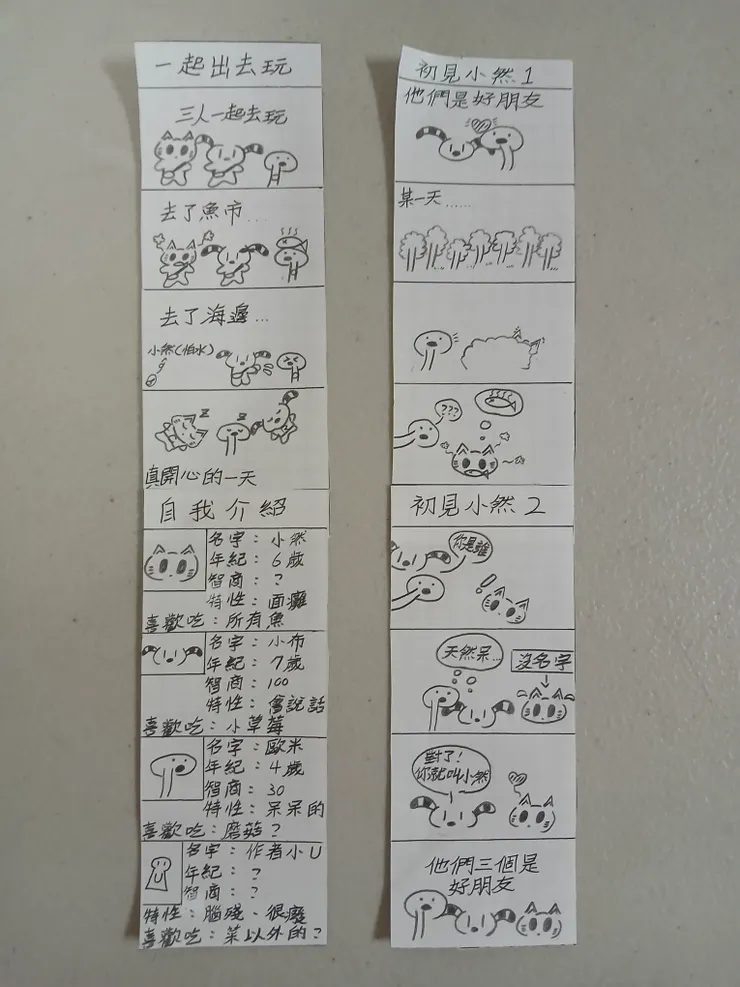 一起出去玩
三人一起去玩
去了魚市...
去了海邊...
小然(怕水)
z
z
真開心的一天
自我介紹
名字：小然
年紀：6歲
智商：?
特性：面癱
喜歡吃：所有魚
名字：小布
年紀：7歲
智商：100
特性：會說話
喜歡吃：小草莓
名字：歐米
年紀：4歲
智商：30
特性：呆呆的
喜歡吃：磨菇?
名字：作者小U
年紀：?
智商：?
特性：腦殘、很廢
喜歡吃：菜以外的?
初見小然1
他們是好朋友
某一天......
???
初見小然2
你是誰
!
天然呆...
沒名字
對了!
你就叫小然
他們三個是
好朋友